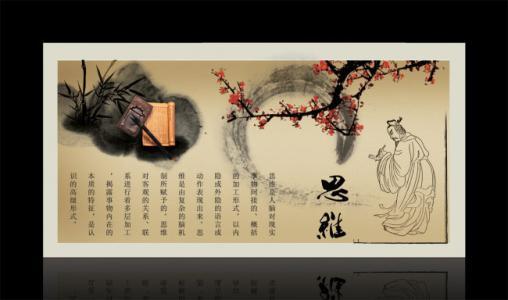 思維
思维是人脑对现实
事物间接的、概括
的加工形式,以内
隐或外隐的语言或
动作表现出来。思
维是由复杂的脑机
制所赋予的。思维
对客观的关系、联
系进行着多层加工
,揭露事物内在的
本质的特征,是认
识的高级形式。